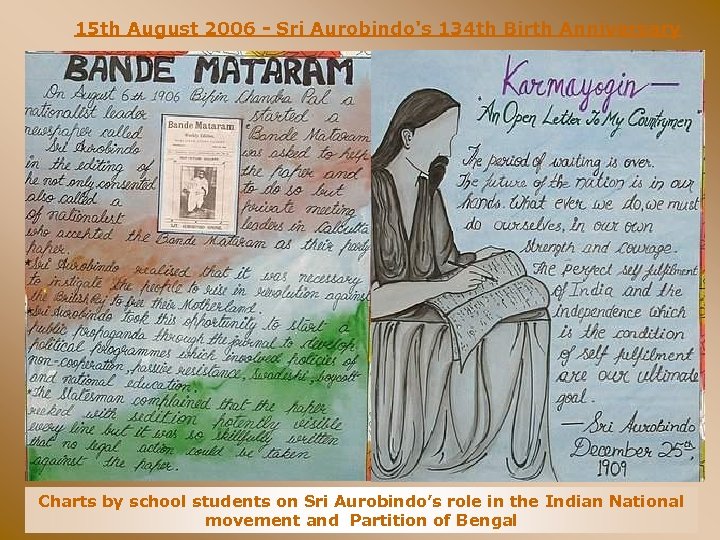 15th August 2006 - Sri Aurobindo's 134th Birth Anniversary
BANDE MATARAM
On August 6th 1906 Bipin Chandra Pal a
nationalist leader started a
newspaper called "Bande Mataram
Sri Aurobindo was asked to help
in the editing of the paper and
he not only consented to do so but
also called a private meeting
of nationalist leaders in Calcutta
who accepted the Bande Mataram as their party
paper.
*Sri Aurobindo realised that it was necessary
to instigate the people to rise in revolution against
the British Raj to free their Motherland.
*Sri Aurobindo took this opportunity to start a
public propaganda through the journal to develop
political programmes which involved policies of
non-cooperation, passive resistance, swadeshi, boycott
and national education.
*The Statesman complained that the paper
reeked with sedition potently visible
every line but it was so skillfully written
that no legal action could be taken
against the paper.
Bande Mataram
Weekly Edition
Karmayogin —
"An Open Letter To My Countrymen"
The period of waiting is over.
The future of the nation is in our
hands. What ever we do, we must
do ourselves, in our own
strength and courage.
The perfect self fulfilment
of India and the
independence which
is the condition
of self fulfilment
are our ultimate
goal.
— Sri Aurobindo
December 25th,
1909
Charts by school students on Sri Aurobindo’s role in the Indian National
movement and Partition of Bengal